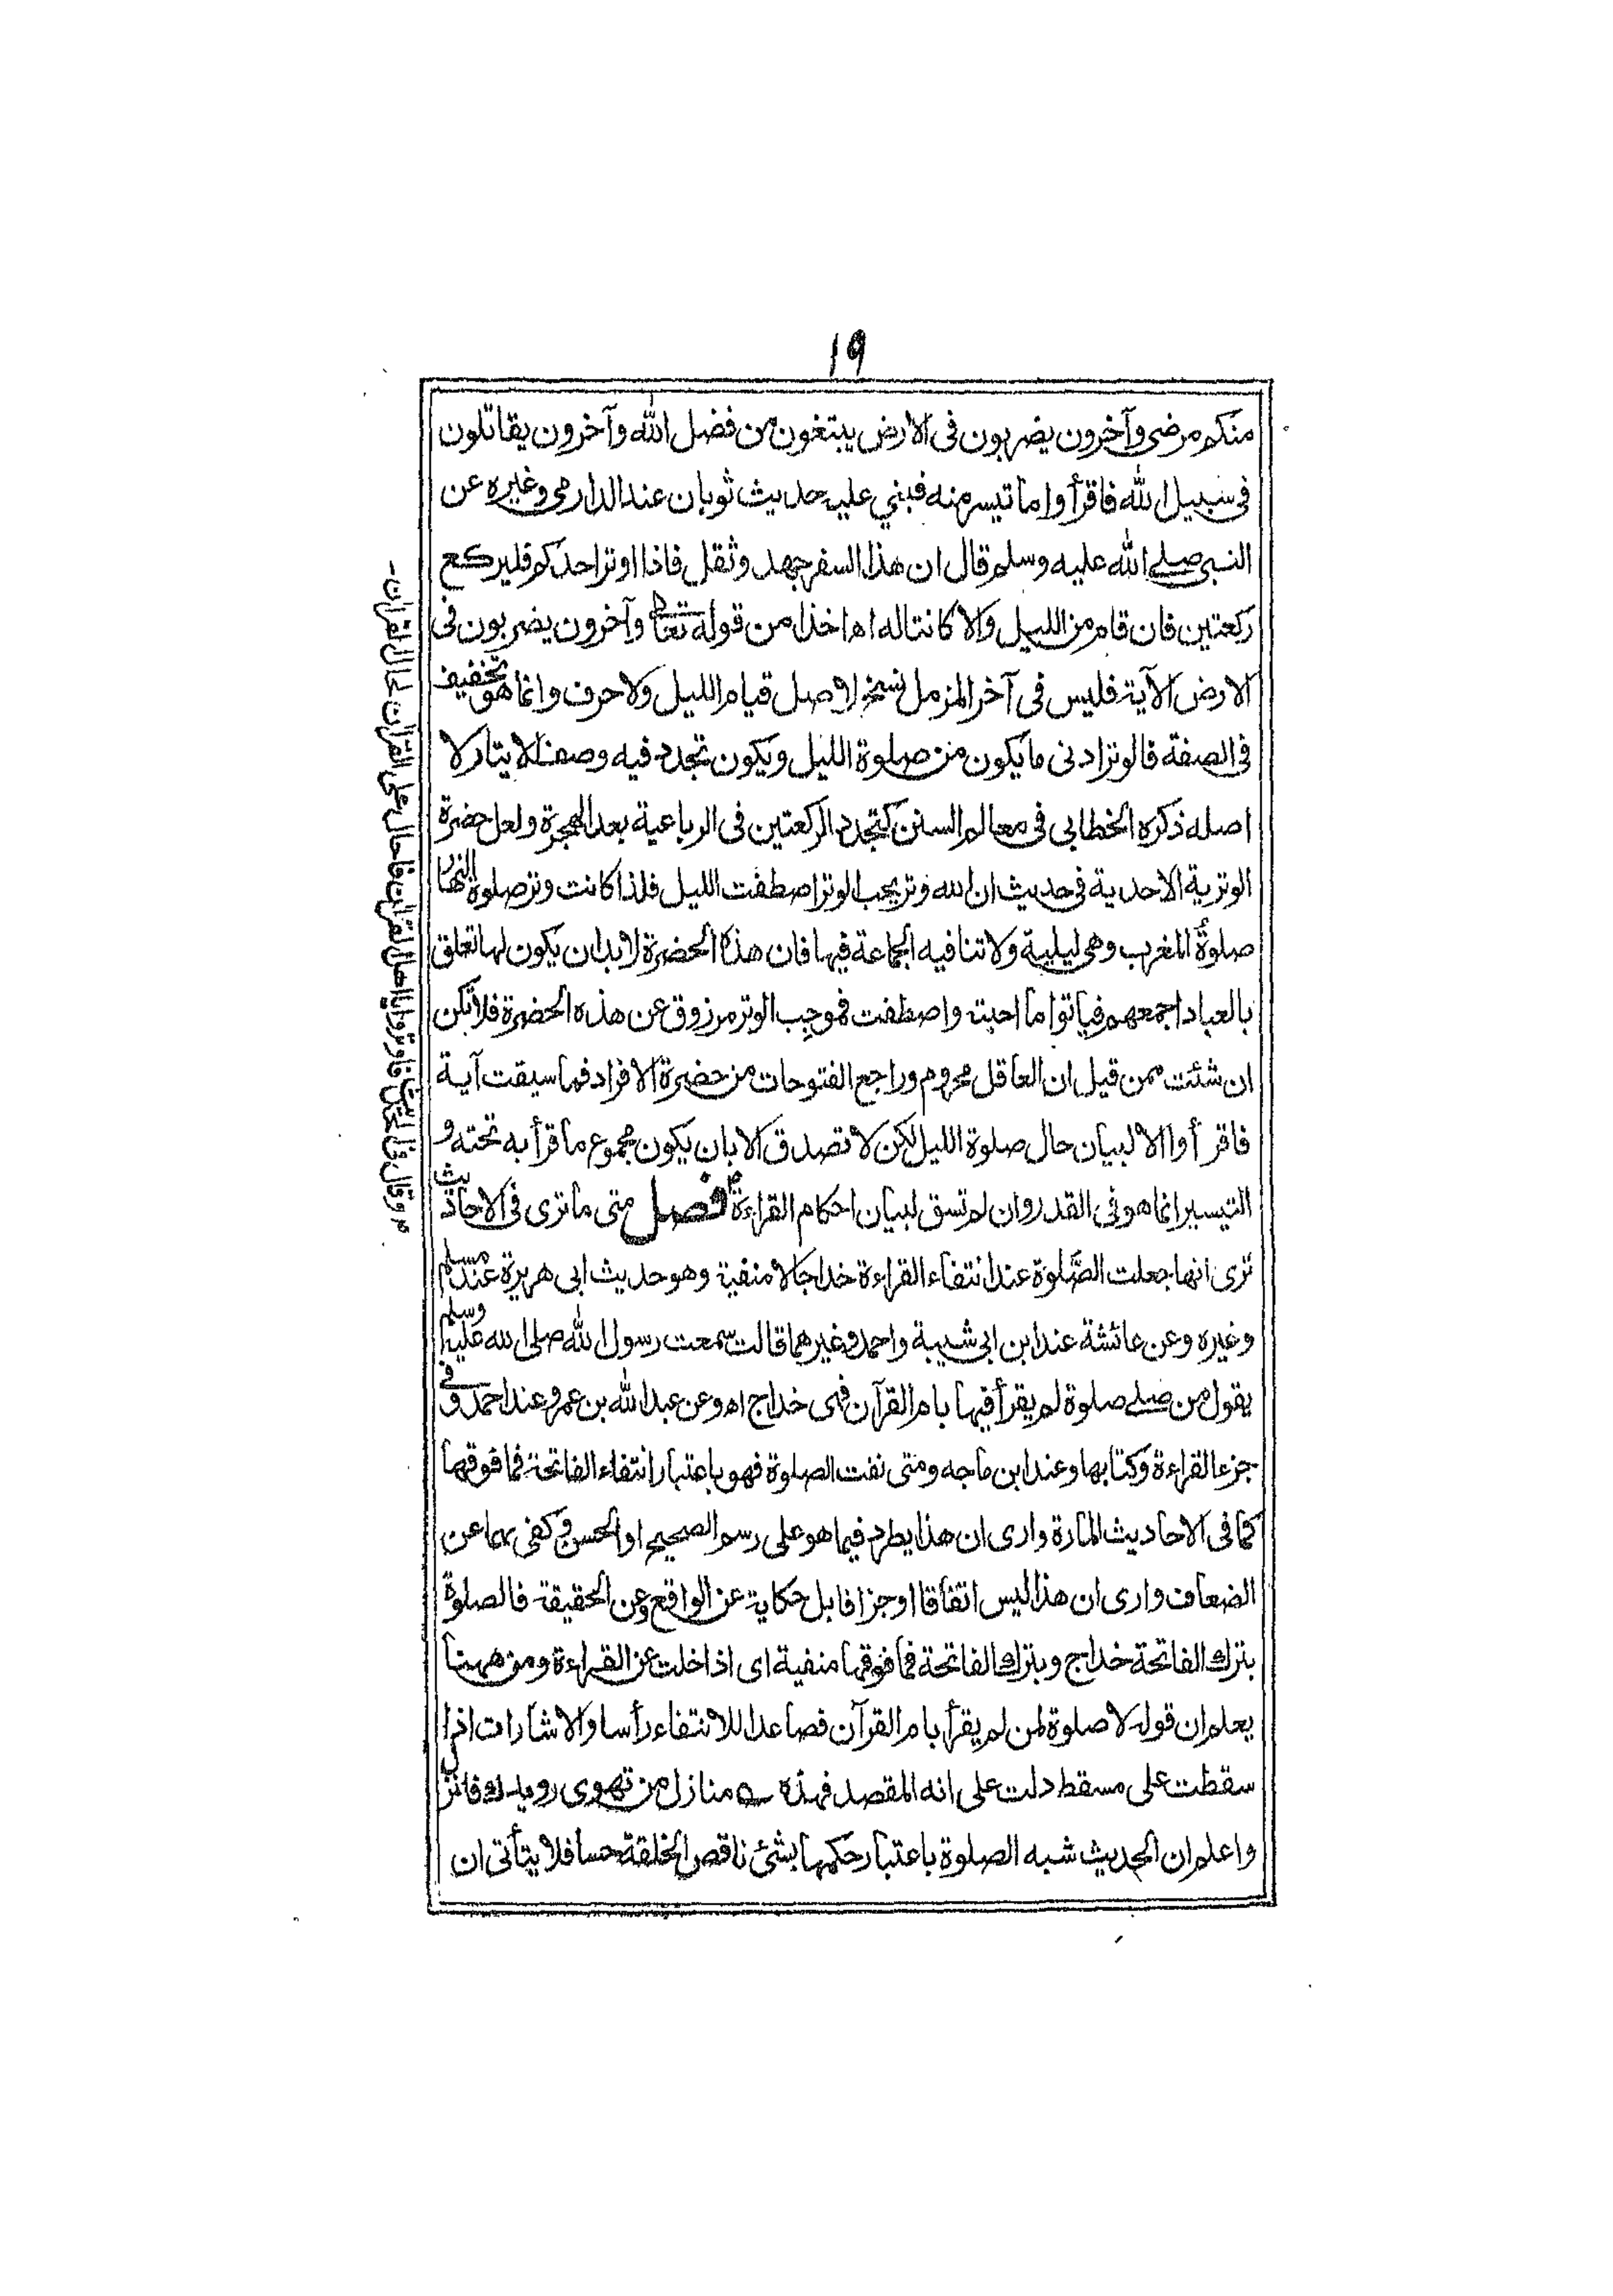 ١٩
منكم مرضى وآخرون يضربون فى الارض يبتغون من فضل الله وآخرون يقاتلون
فى سبيل الله فاقرأوا ما تيسر منه فبني عليه حديث ثوبان عند الدارمى وغيره عن
النبى صلے الله عليه وسلم قال ان هذا السفر جهد وثقل فاذا اوتر احدكم فليركع
ركعتين فان قام من الليل والا كانتا له اه اخذا من قوله تعالى وآخرون يضربون فى
الارض الآية فليس فى آخر المزمل نسخ لاصل قيام الليل ولا حرف وانما هو تخفيف
فى الصفة فالوتر ادنى ما يكون من صلوة الليل ويكون تجدد فيه وصف الايتار لا
اصله ذكره الخطابى فى معالم السنن كتجدد الركعتين فى الرباعية بعد الهجرة ولعل حضرة
الوترية الاحدية فى حديث ان الله وتر يحب الوتر اصطفت الليل فلذا كانت وتر صلوة النهار
صلوة المغرب وهى ليلية ولا تنافيه الجماعة فيها فان هذه الحضرة لابد ان يكون لها تعلق
بالعباد اجمعهم فياتوا ما احبته واصطفت فموجب الوتر مرزوق عن هذه الحضرة فلا تكن
ان شئت ممن قيل ان العاقل محروم وراجع الفتوحات من حضرة الافراد فما سيقت آية
فاقرأوا الا لبيان حال صلوة الليل لكن لا تصدق الا بان يكون مجموع ما قرأ به تحته و
التيسير انما هو فى القدر وان لم تسق لبيان احكام القراءة فصل متى ما ترى فى الاحاديث
ترى انها جعلت الصلوة عند انتفاء القراءة خداجا لا منفية وهو حديث ابى هريرة عند مسلم
وغيره وعن عائشة عند ابن ابى شيبة واحمد وغيرهما قالت سمعت رسول الله صلى الله عليه وسلم
يقول من صلے صلوة لم يقرأ فيها بام القرآن فهى خداج اه وعن عبد الله بن عمرو عند احمد و فے
جزء القراءة وكتابها وعند ابن ماجه ومتى نفت الصلوة فهو باعتبار انتفاء الفاتحة فما فوقها
كما فى الاحاديث المارة وارى ان هذا يطرد فيما هو على رسم الصحيح او الحسن وكفى بهما عن
الضعاف وارى ان هذا ليس اتفاقا او جزافا بل حكاية عن الواقع وعن الحقيقة فالصلوة
بترك الفاتحة خداج وبترك الفاتحة فما فوقها منفية اى اذا خلت عن القراءة ومن ههنا
يعلم ان قوله لا صلوة لمن لم يقرأ بام القرآن فصاعدا للانتفاء رأسا والاشارات اذا
سقطت على مسقط دلت على انه المقصد فهذه ے منازل من تهوى رويدك فانزل
واعلم ان الحديث شبه الصلوة باعتبار حكمها بشئ ناقص الخلقة حسا فلا يتأتى ان